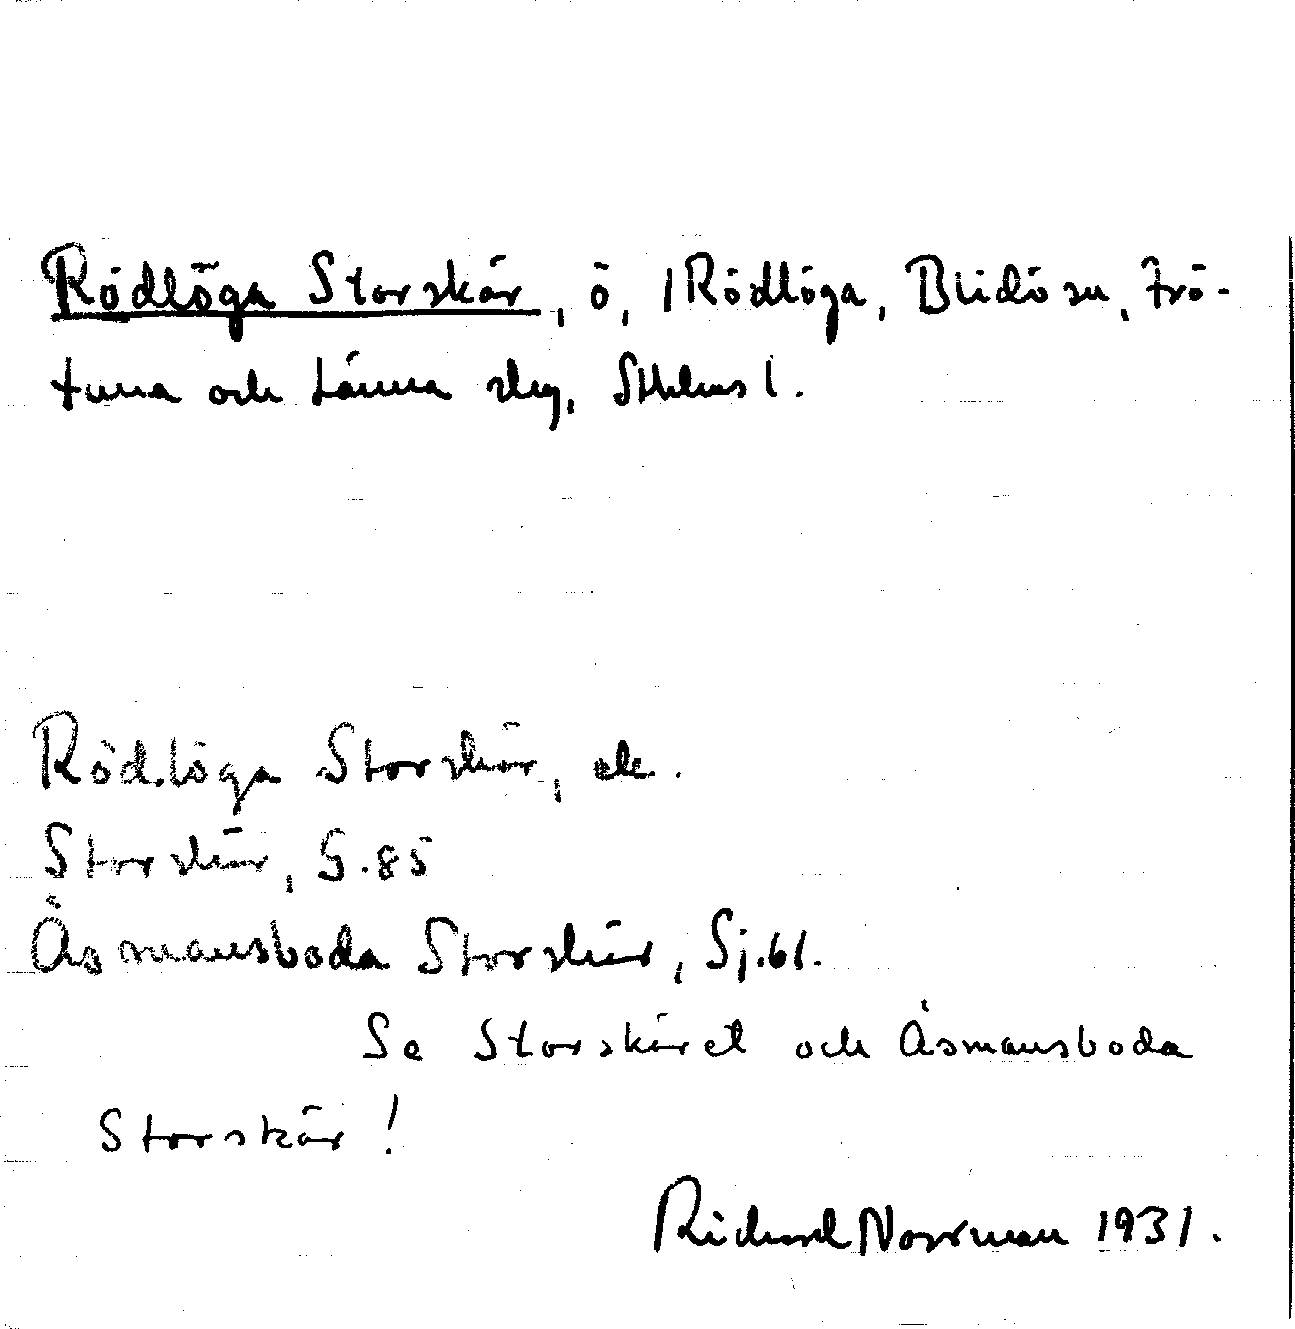 Rödlöga Storskär, ö, /Rödlöga, Blidö sn, Frö-
tuna och Länna slg, Sthlms l.
Rödlöga Storskär, ek.
Storskär, G.85
Åsmansboda Storskär, Sj.61.
Se Storskäret och Åsmansboda
Storskär!
Richard Norrman 1931.